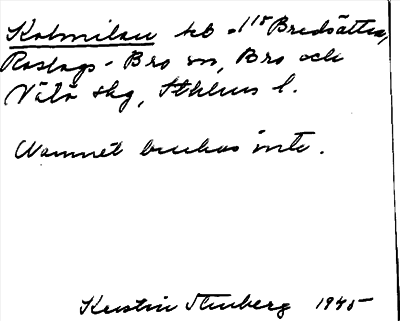 Kolmilan hb å 1¹⁵ Bredsättra,
Roslags-Bro sn, Bro och
Vätö skg, Sthlms l.
Namnet brukas inte.
Kerstin Stenberg 1945